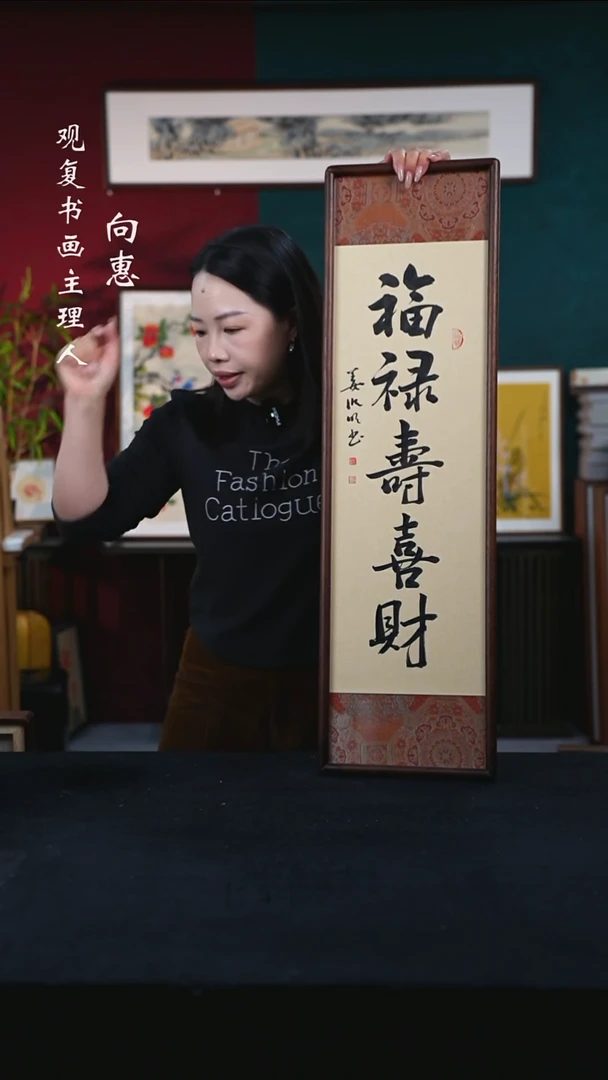 观复书画主理人
向惠
福禄壽喜財
The
Fashion
Catiogue